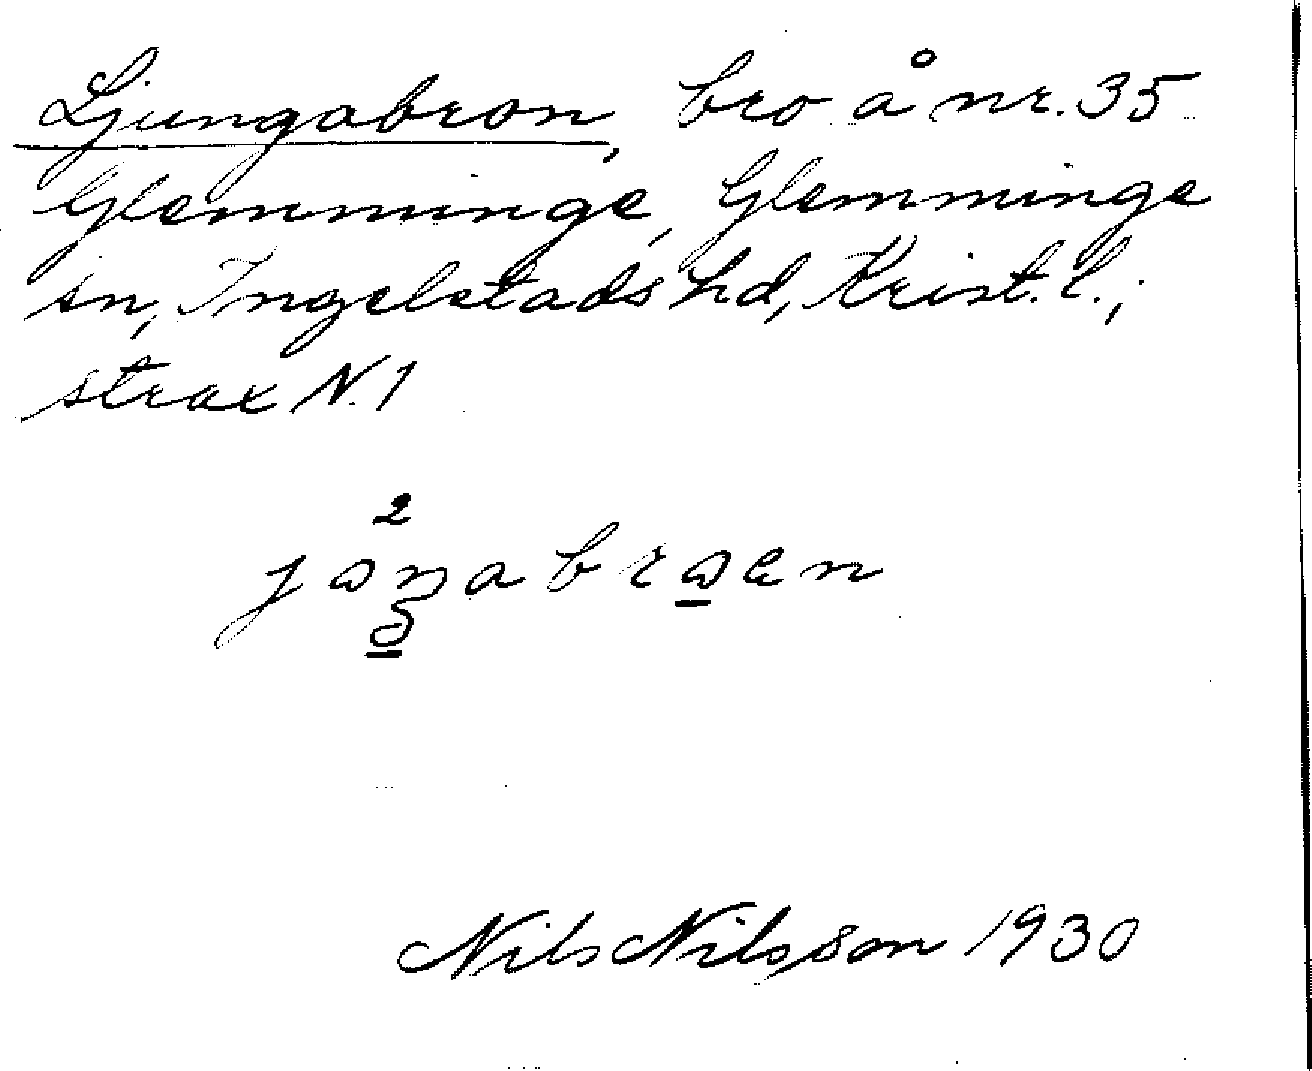 Ljungabron, bro å nr. 35
Glemminge, Glemminge
sn, Ingelstads hd, Krist. l.;
strax N. 1
Nils Nilsson 1930